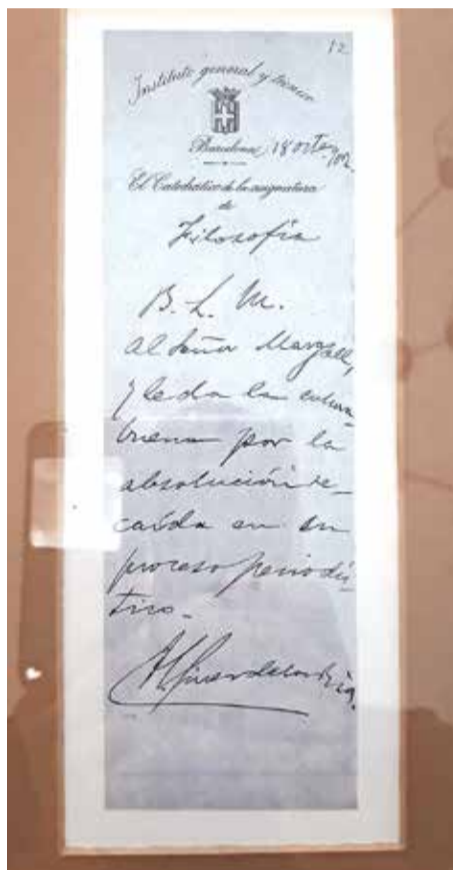 12
Instituto general y técnico
Barcelona, 18 octe 902.
El Catedrático de la asignatura
de
Filosofía
B. L. M.
al Señor Maragall,
y le da la enhora-
buena por la
absolución re-
caída en su
proceso periodís-
tico.